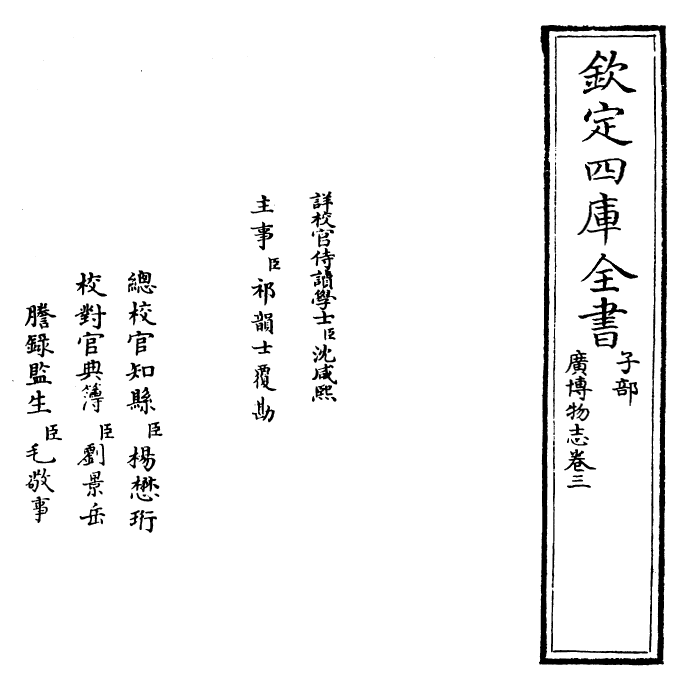 欽定四庫全書
子部
廣博物志卷三
詳校官侍讀學士臣沈咸熙
主事臣祁韻士覆勘
總校官知縣臣楊懋珩
校對官典簿臣劉景岳
謄錄監生臣毛敬事